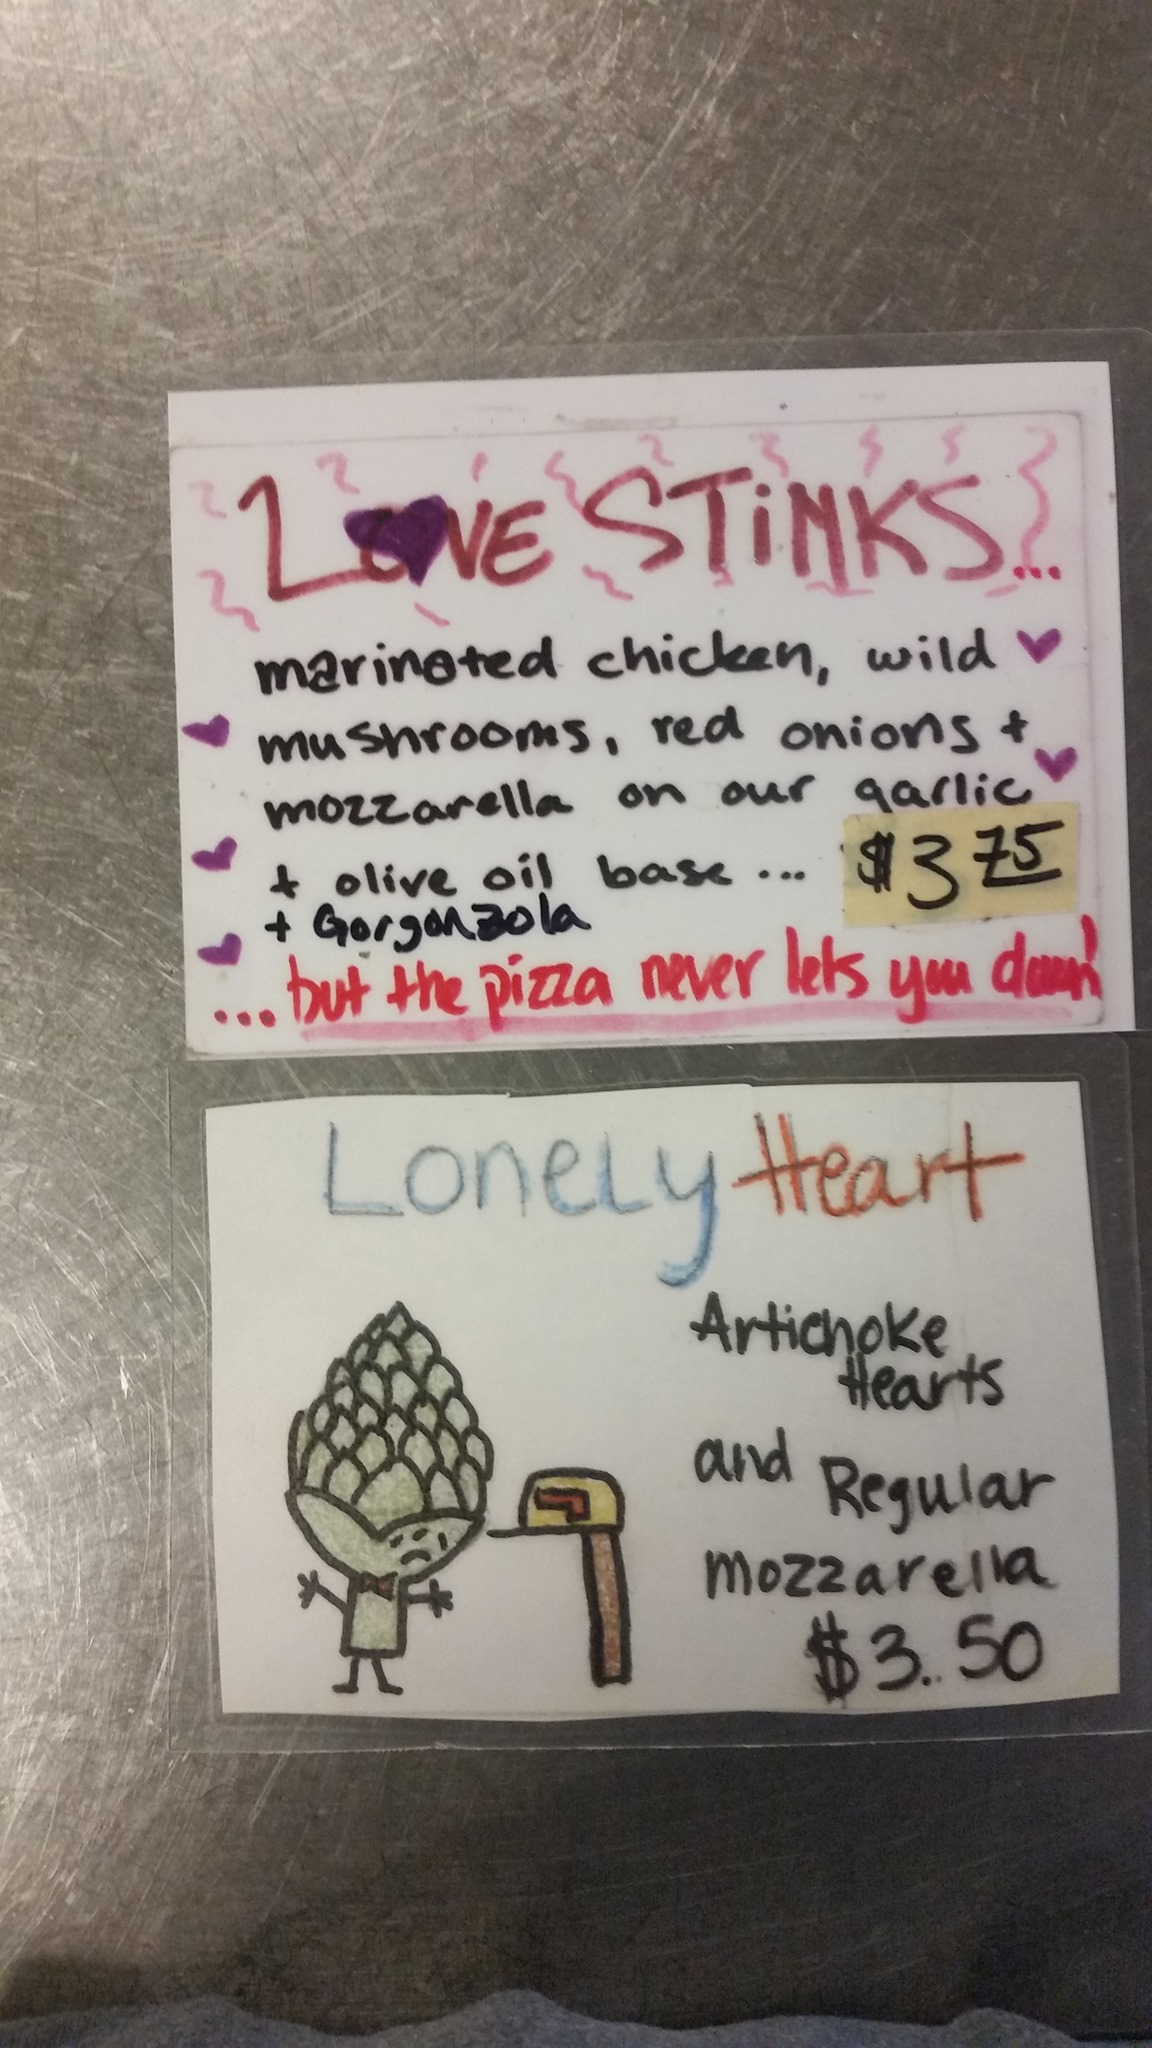 LOVE STiNKS...
marinated chicken, wild
mushrooms, red onions +
mozzarella on our garlic
+ olive oil base... $3 75
+ Gorgonzola
...but the pizza never lets you down!
Lonely Heart
Artichoke
Hearts
and Regular
mozzarella
$3.50